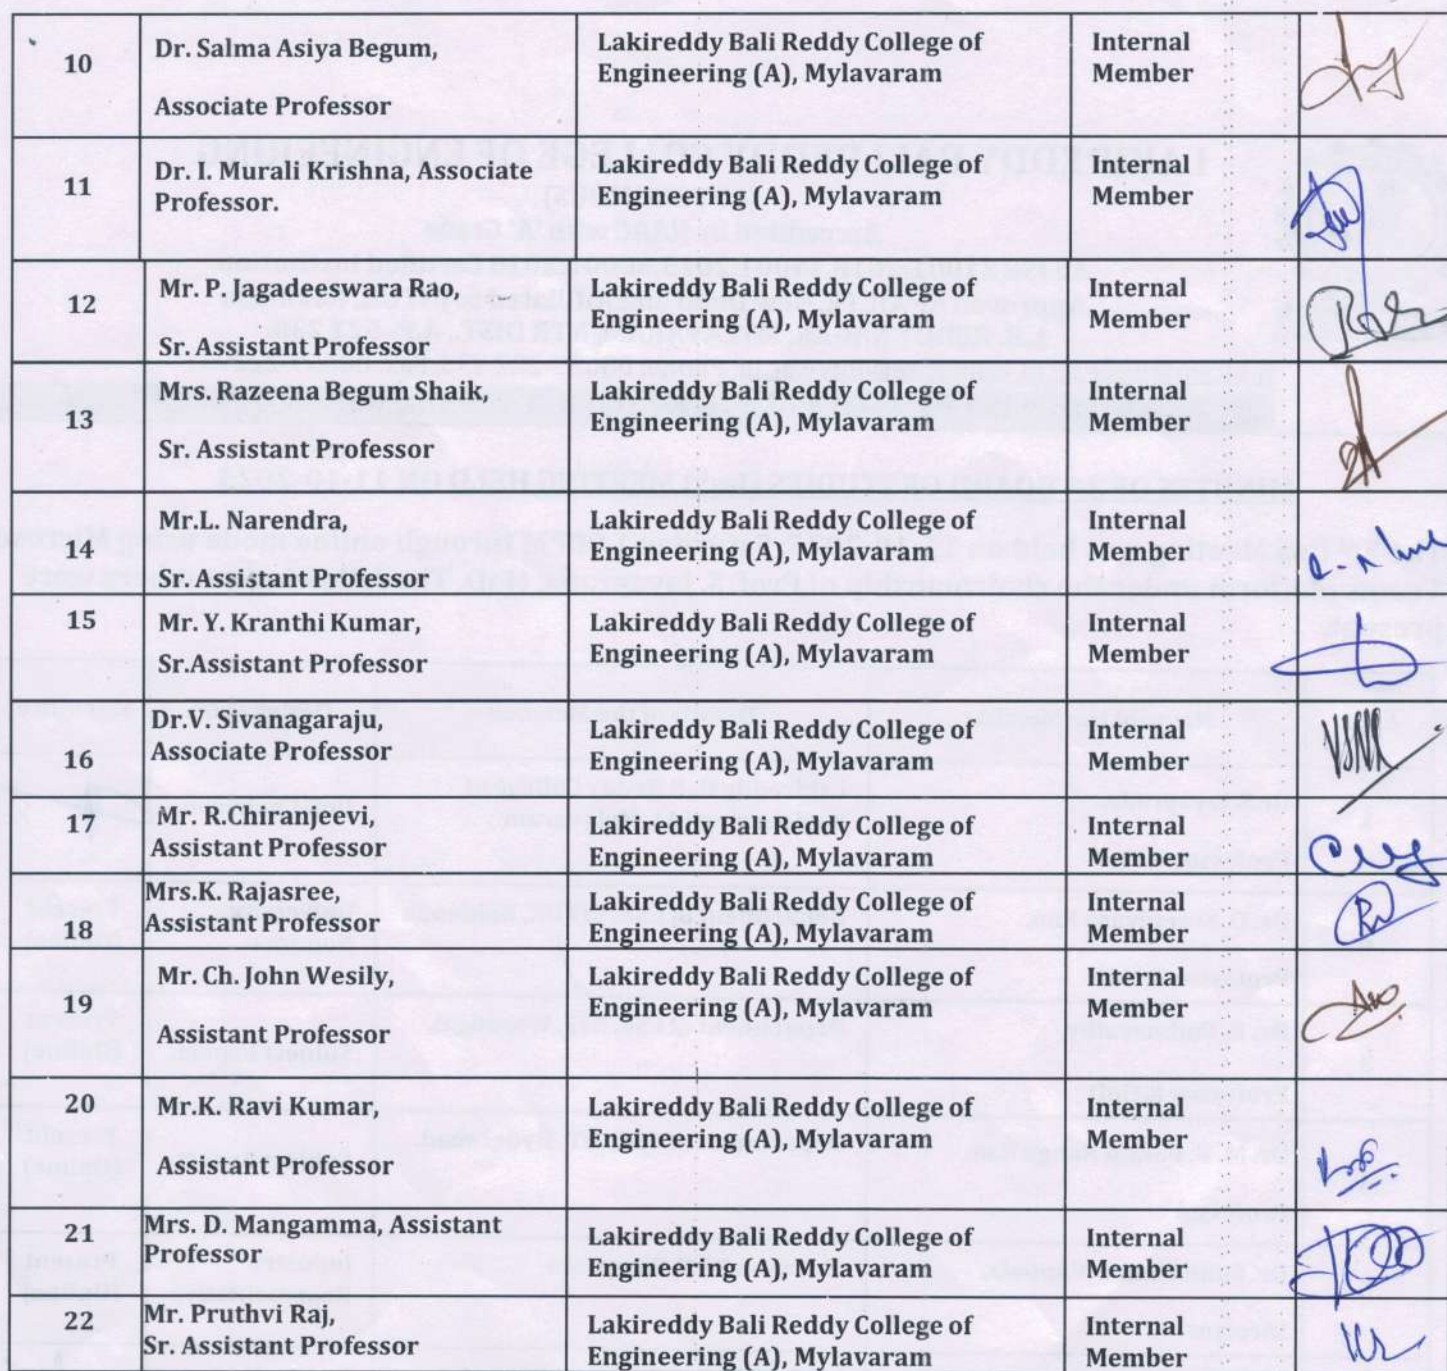 10
Dr. Salma Asiya Begum,
Associate Professor
Lakireddy Bali Reddy College of
Engineering (A), Mylavaram
Internal
Member
11
Dr. I. Murali Krishna, Associate
Professor.
Lakireddy Bali Reddy College of
Engineering (A), Mylavaram
Internal
Member
12
Mr. P. Jagadeeswara Rao,
Sr. Assistant Professor
Lakireddy Bali Reddy College of
Engineering (A), Mylavaram
Internal
Member
13
Mrs. Razeena Begum Shaik,
Sr. Assistant Professor
Lakireddy Bali Reddy College of
Engineering (A), Mylavaram
Internal
Member
14
Mr.L. Narendra,
Sr. Assistant Professor
Lakireddy Bali Reddy College of
Engineering (A), Mylavaram
Internal
Member
15
Mr. Y. Kranthi Kumar,
Sr.Assistant Professor
Lakireddy Bali Reddy College of
Engineering (A), Mylavaram
Internal
Member
16
Dr.V. Sivanagaraju,
Associate Professor
Lakireddy Bali Reddy College of
Engineering (A), Mylavaram
Internal
Member
17
Mr. R.Chiranjeevi,
Assistant Professor
Lakireddy Bali Reddy College of
Engineering (A), Mylavaram
Internal
Member
18
Mrs.K. Rajasree,
Assistant Professor
Lakireddy Bali Reddy College of
Engineering (A), Mylavaram
Internal
Member
19
Mr. Ch. John Wesily,
Assistant Professor
Lakireddy Bali Reddy College of
Engineering (A), Mylavaram
Internal
Member
20
Mr.K. Ravi Kumar,
Assistant Professor
Lakireddy Bali Reddy College of
Engineering (A), Mylavaram
Internal
Member
21
Mrs. D. Mangamma, Assistant
Professor
Lakireddy Bali Reddy College of
Engineering (A), Mylavaram
Internal
Member
22
Mr. Pruthvi Raj,
Sr. Assistant Professor
Lakireddy Bali Reddy College of
Engineering (A), Mylavaram
Internal
Member